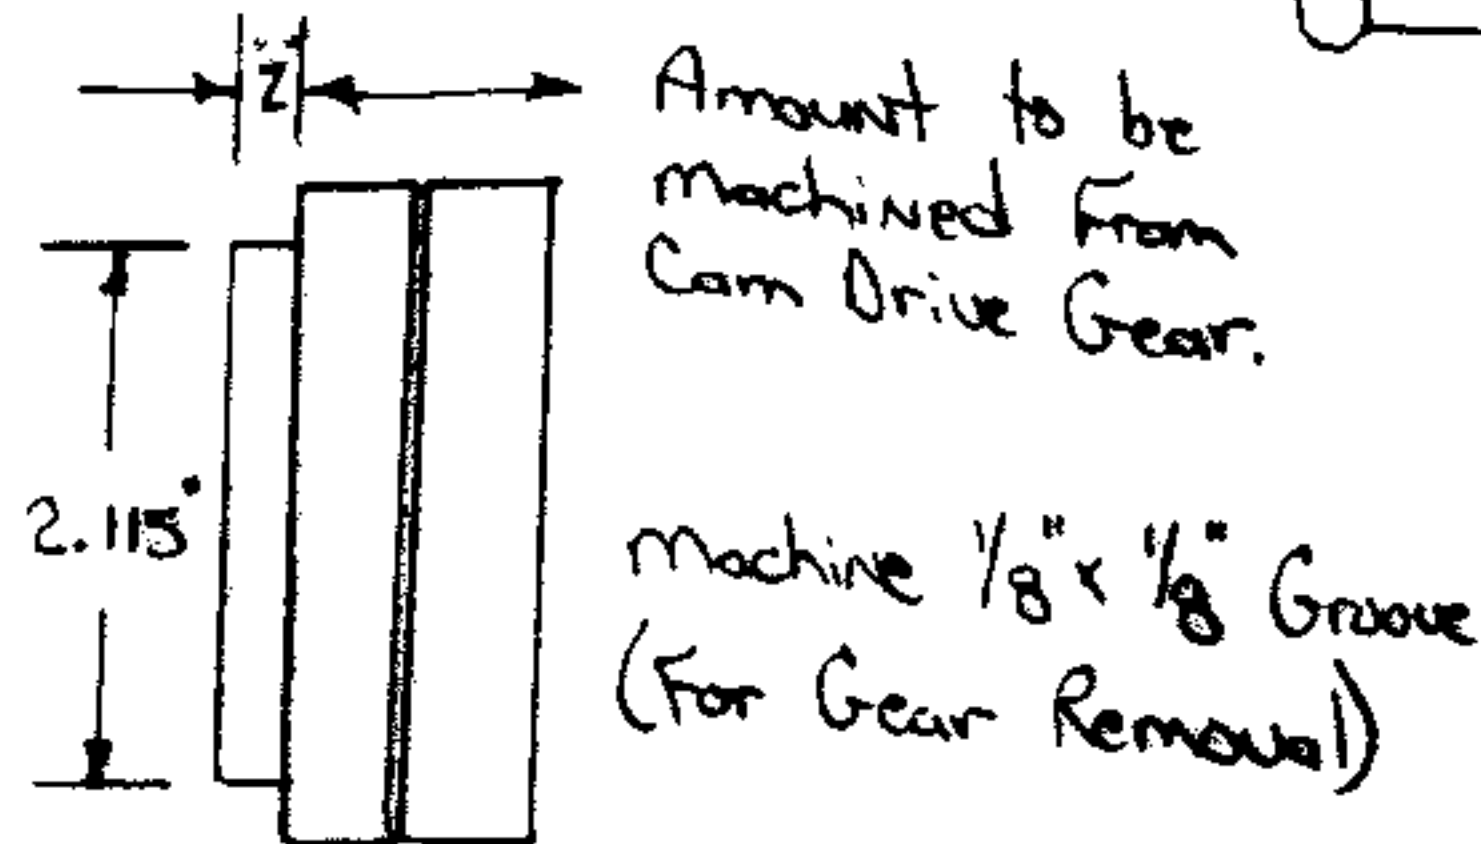 Z
Amount to be
Machined From
Cam Drive Gear.
2.115"
Machine 1/8" x 1/8" Groove
(For Gear Removal)